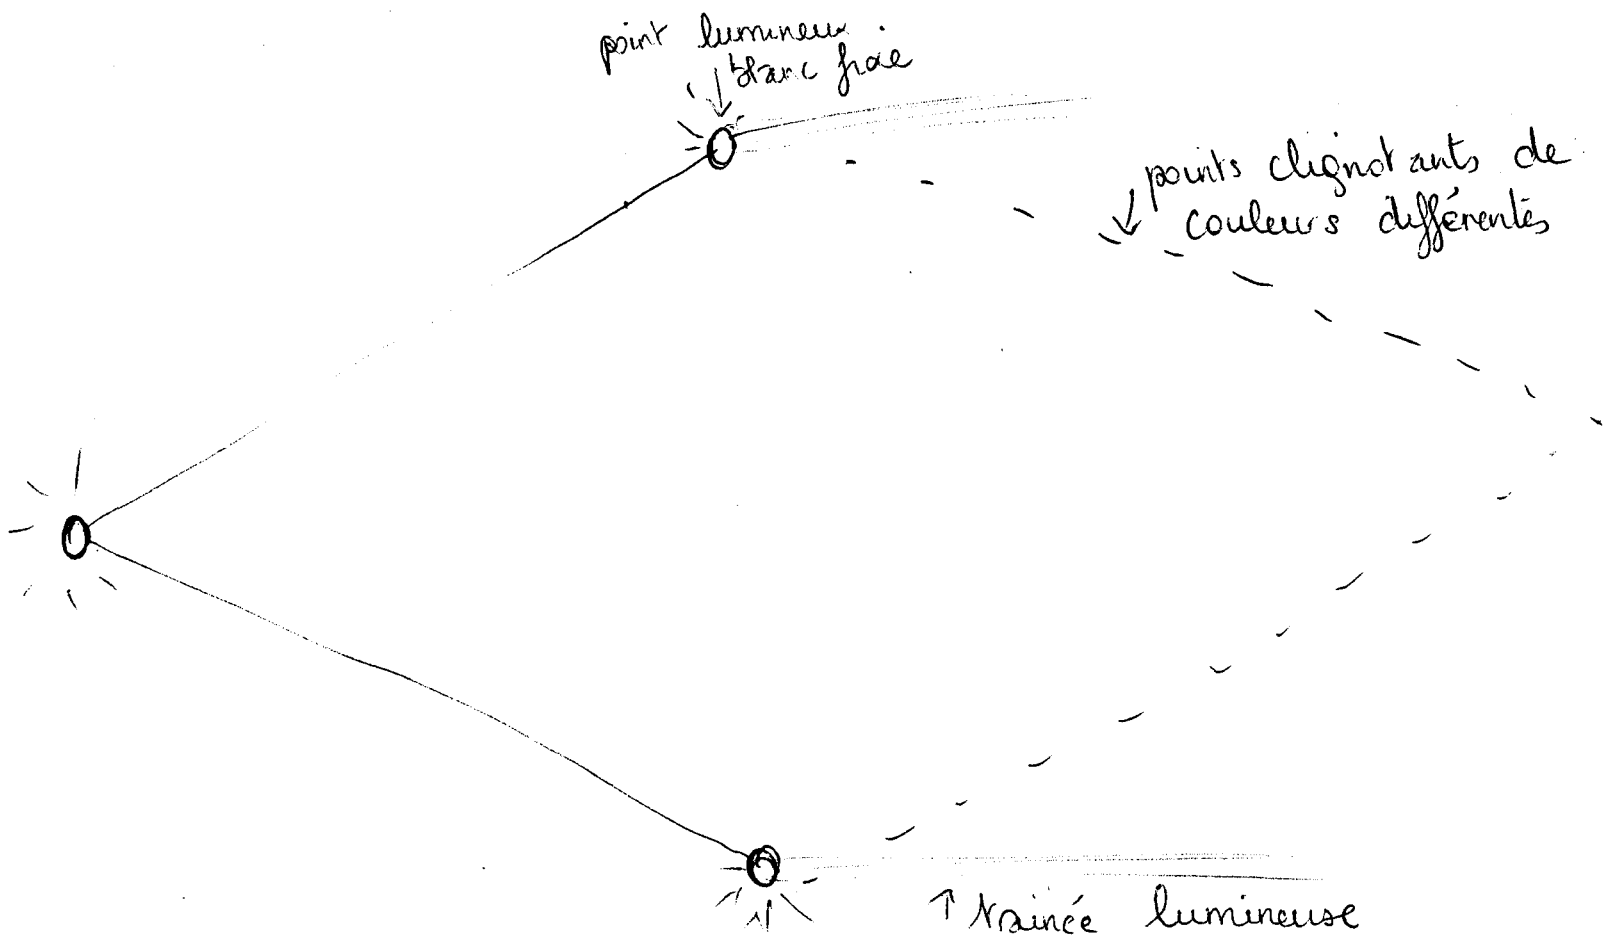 point lumineux
blanc fixe
points clignotants de
couleurs différentes
trainée lumineuse